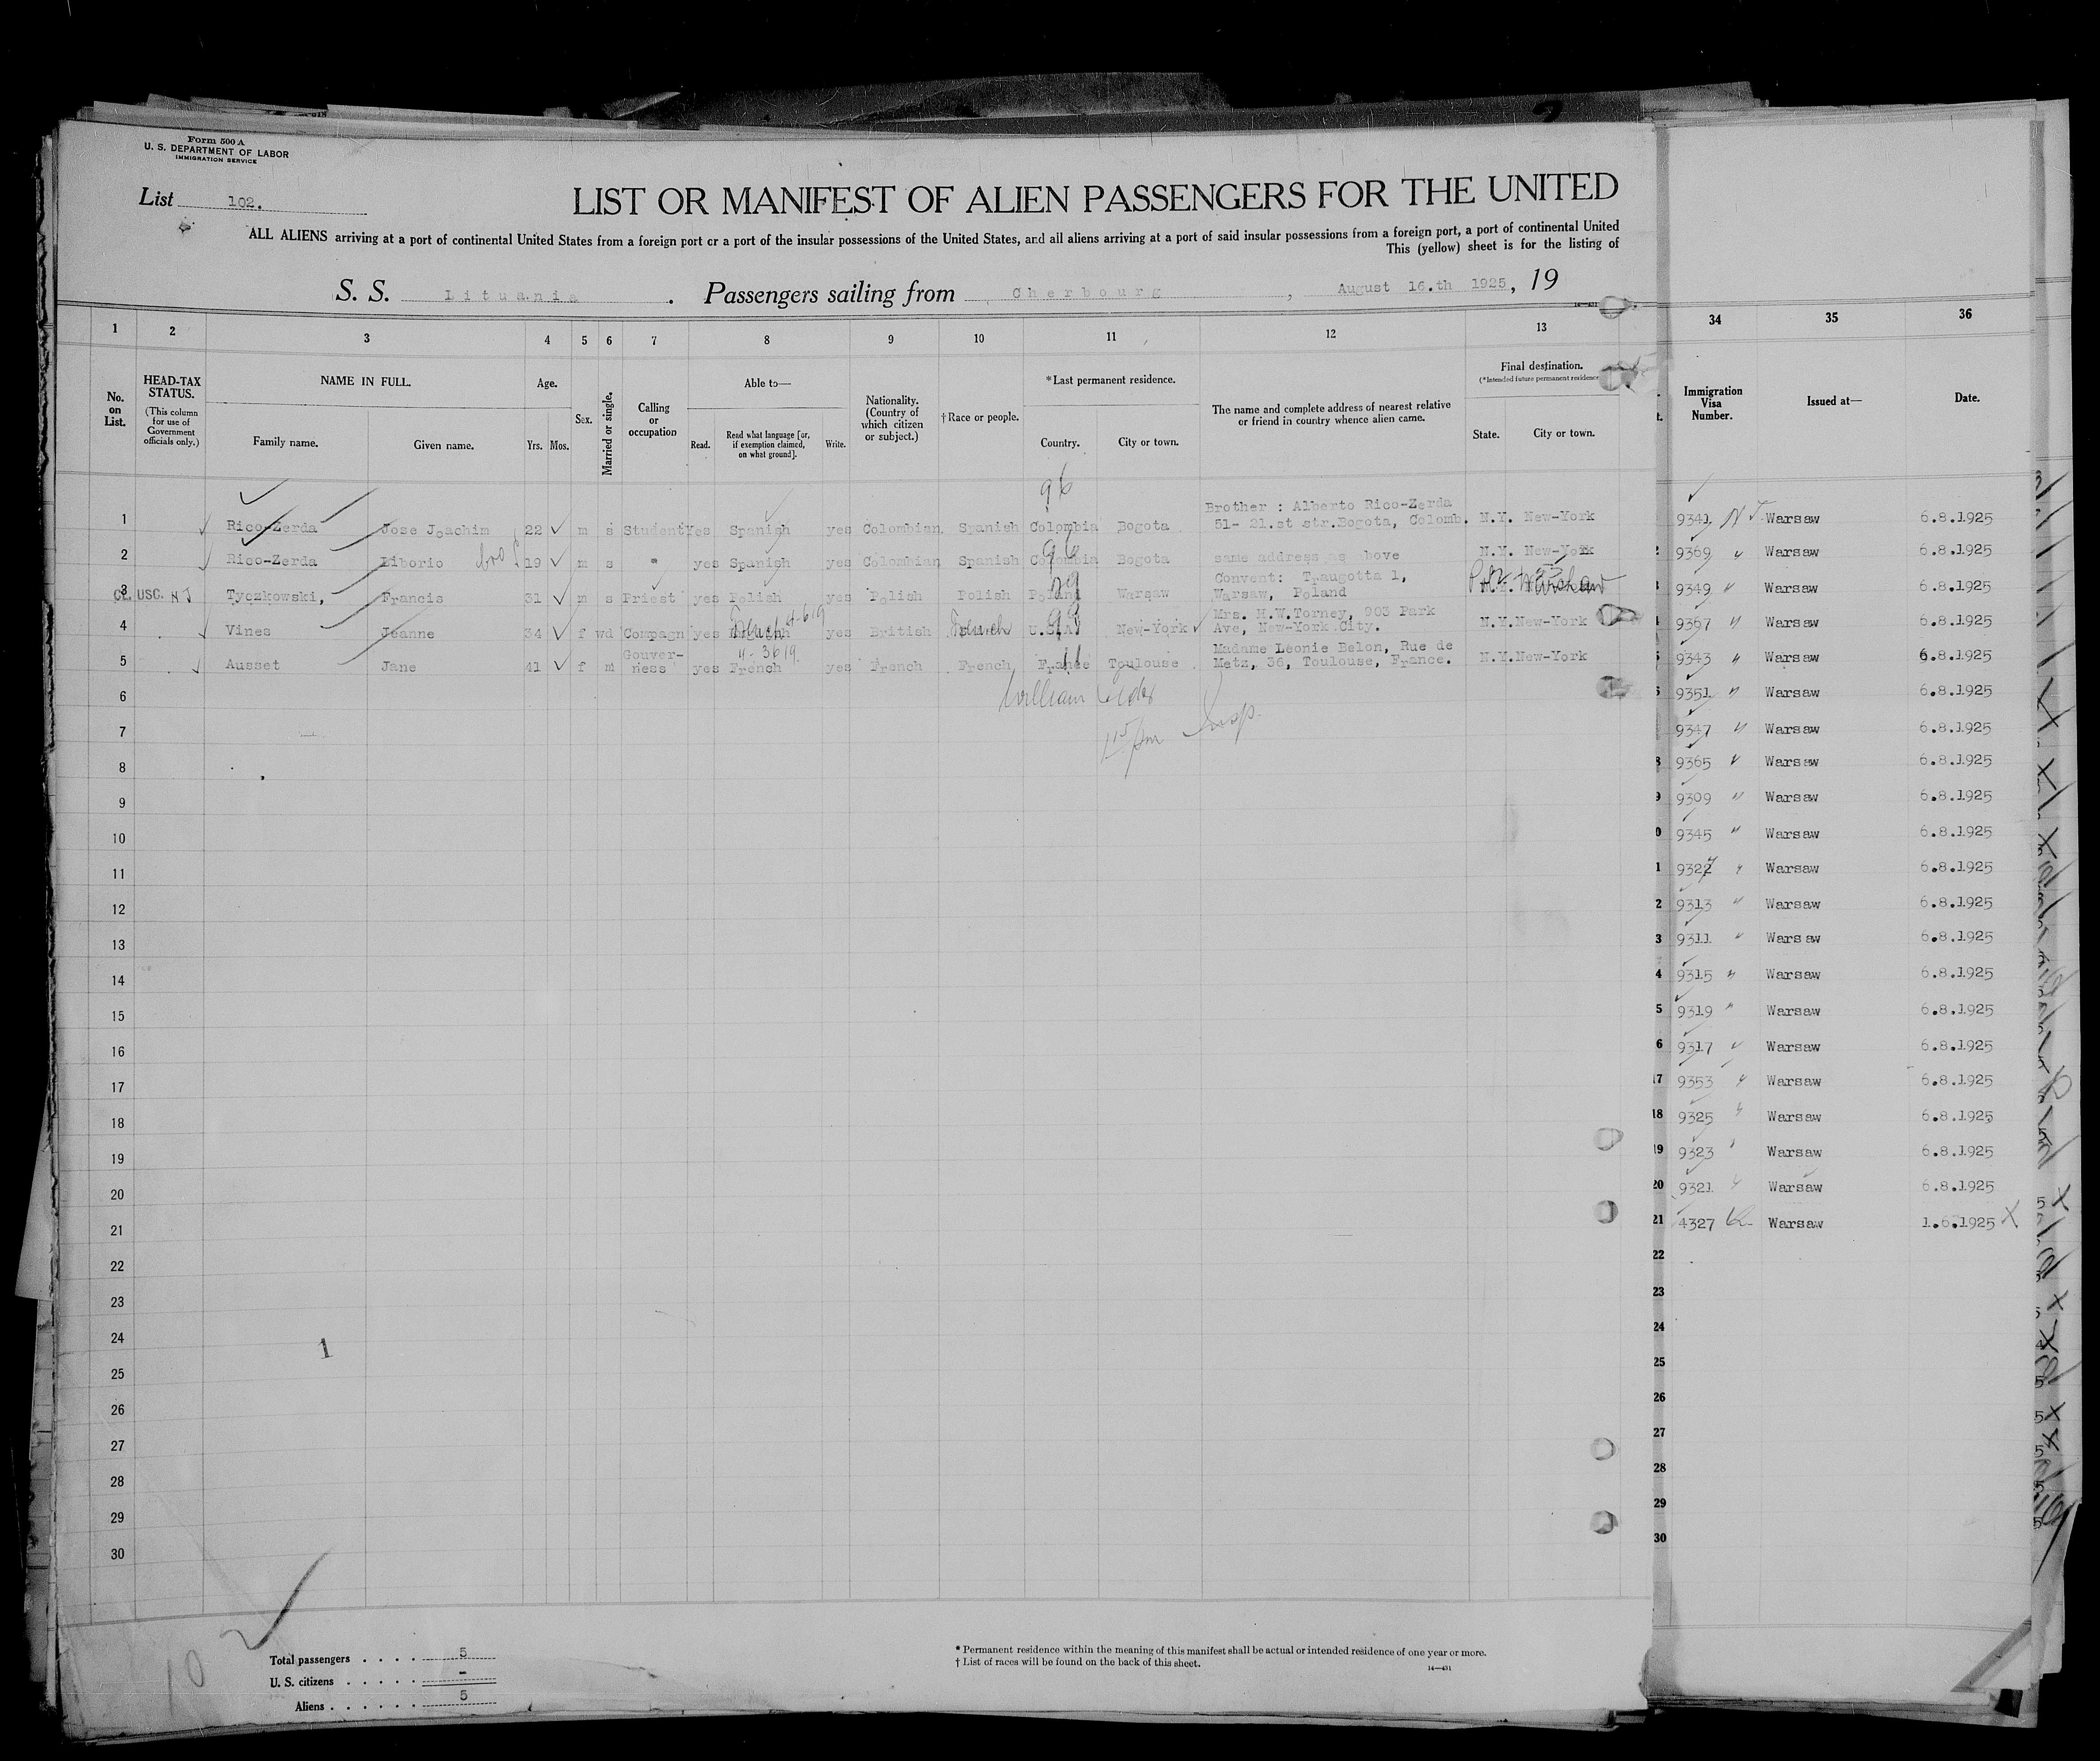 Form 500 A
U. S. DEPARTMENT OF LABOR
IMMIGRATION SERVICE
List 102.
LIST OR MANIFEST OF ALIEN PASSENGERS FOR THE UNITED
ALL ALIENS arriving at a port of continental United States from a foreign port or a port of the insular possessions of the United States, and all aliens arriving at a port of said insular possessions from a foreign port, a port of continental United
This (yellow) sheet is for the listing of
S. S. Lituania. Passengers sailing from Cherbourg, August 16.th 1925, 19
1 2 3 4 5 6 7 8 9 10 11 12 13
No. on List.
HEAD-TAX STATUS.
(This column for use of Government officials only.)
NAME IN FULL.
Family name. Given name.
Age.
Yrs. Mos.
Sex.
Married or single.
Calling or occupation
Able to—
Read. Read what language [or, if exemption claimed, on what ground]. Write.
Nationality. (Country of which citizen or subject.)
†Race or people.
*Last permanent residence.
Country. City or town.
The name and complete address of nearest relative or friend in country whence alien came.
Final destination.
(*Intended future permanent residence
State. City or town.
96
Brother : Alberto Rico-Zerda
1 Rico-Zerda Jose Joachim 22 m s Student Yes Spanish yes Colombian Spanish Colombia Bogota 51- 21.st str.Bogota, Colomb. N.Y. New-York
2 Rico-Zerda Liborio bro 19 m s " yes Spanish yes Colombian Spanish Colombia Bogota same address as above N.Y. New-York
Convent: Traugotta 1,
3 USC. Tyczkowski, Francis 31 m s Priest yes Polish yes Polish Polish Poland Warsaw Warsaw, Poland
Mrs. H.W.Torney, 903 Park
4 Vines Jeanne 34 f wd Compagn yes yes British U.S.A. New-York Ave, New-York City. N.Y. New-York
Gouver- Madame Leonie Belon, Rue de
5 Ausset Jane 41 f m ness yes French yes French French France Toulouse Metz, 36, Toulouse, France. N.Y. New-York
6 William
7 115 pm Insp.
8
9
10
11
12
13
14
15
16
17
18
19
20
21
22
23
24
25
26
27
28
29
30
1
10
Total passengers . . . . 5
U. S. citizens . . . . . -
Aliens . . . . . . 5
* Permanent residence within the meaning of this manifest shall be actual or intended residence of one year or more.
† List of races will be found on the back of this sheet.
14—431
34 35 36
Immigration Visa Number. Issued at— Date.
9341 Warsaw 6.8.1925
9369 " Warsaw 6.8.1925
9349 " Warsaw 6.8.1925
9367 " Warsaw 6.8.1925
9343 " Warsaw 6.8.1925
9351 " Warsaw 6.8.1925
9347 " Warsaw 6.8.1925
9365 " Warsaw 6.8.1925
9309 " Warsaw 6.8.1925
9345 " Warsaw 6.8.1925
9327 " Warsaw 6.8.1925
9313 " Warsaw 6.8.1925
9311 " Warsaw 6.8.1925
9315 " Warsaw 6.8.1925
9319 " Warsaw 6.8.1925
9317 " Warsaw 6.8.1925
17 9353 " Warsaw 6.8.1925
18 9325 " Warsaw 6.8.1925
19 9323 " Warsaw 6.8.1925
20 9321 " Warsaw 6.8.1925
21 4327 Warsaw 1.6.1925 X
22
23
24
25
26
27
28
29
30